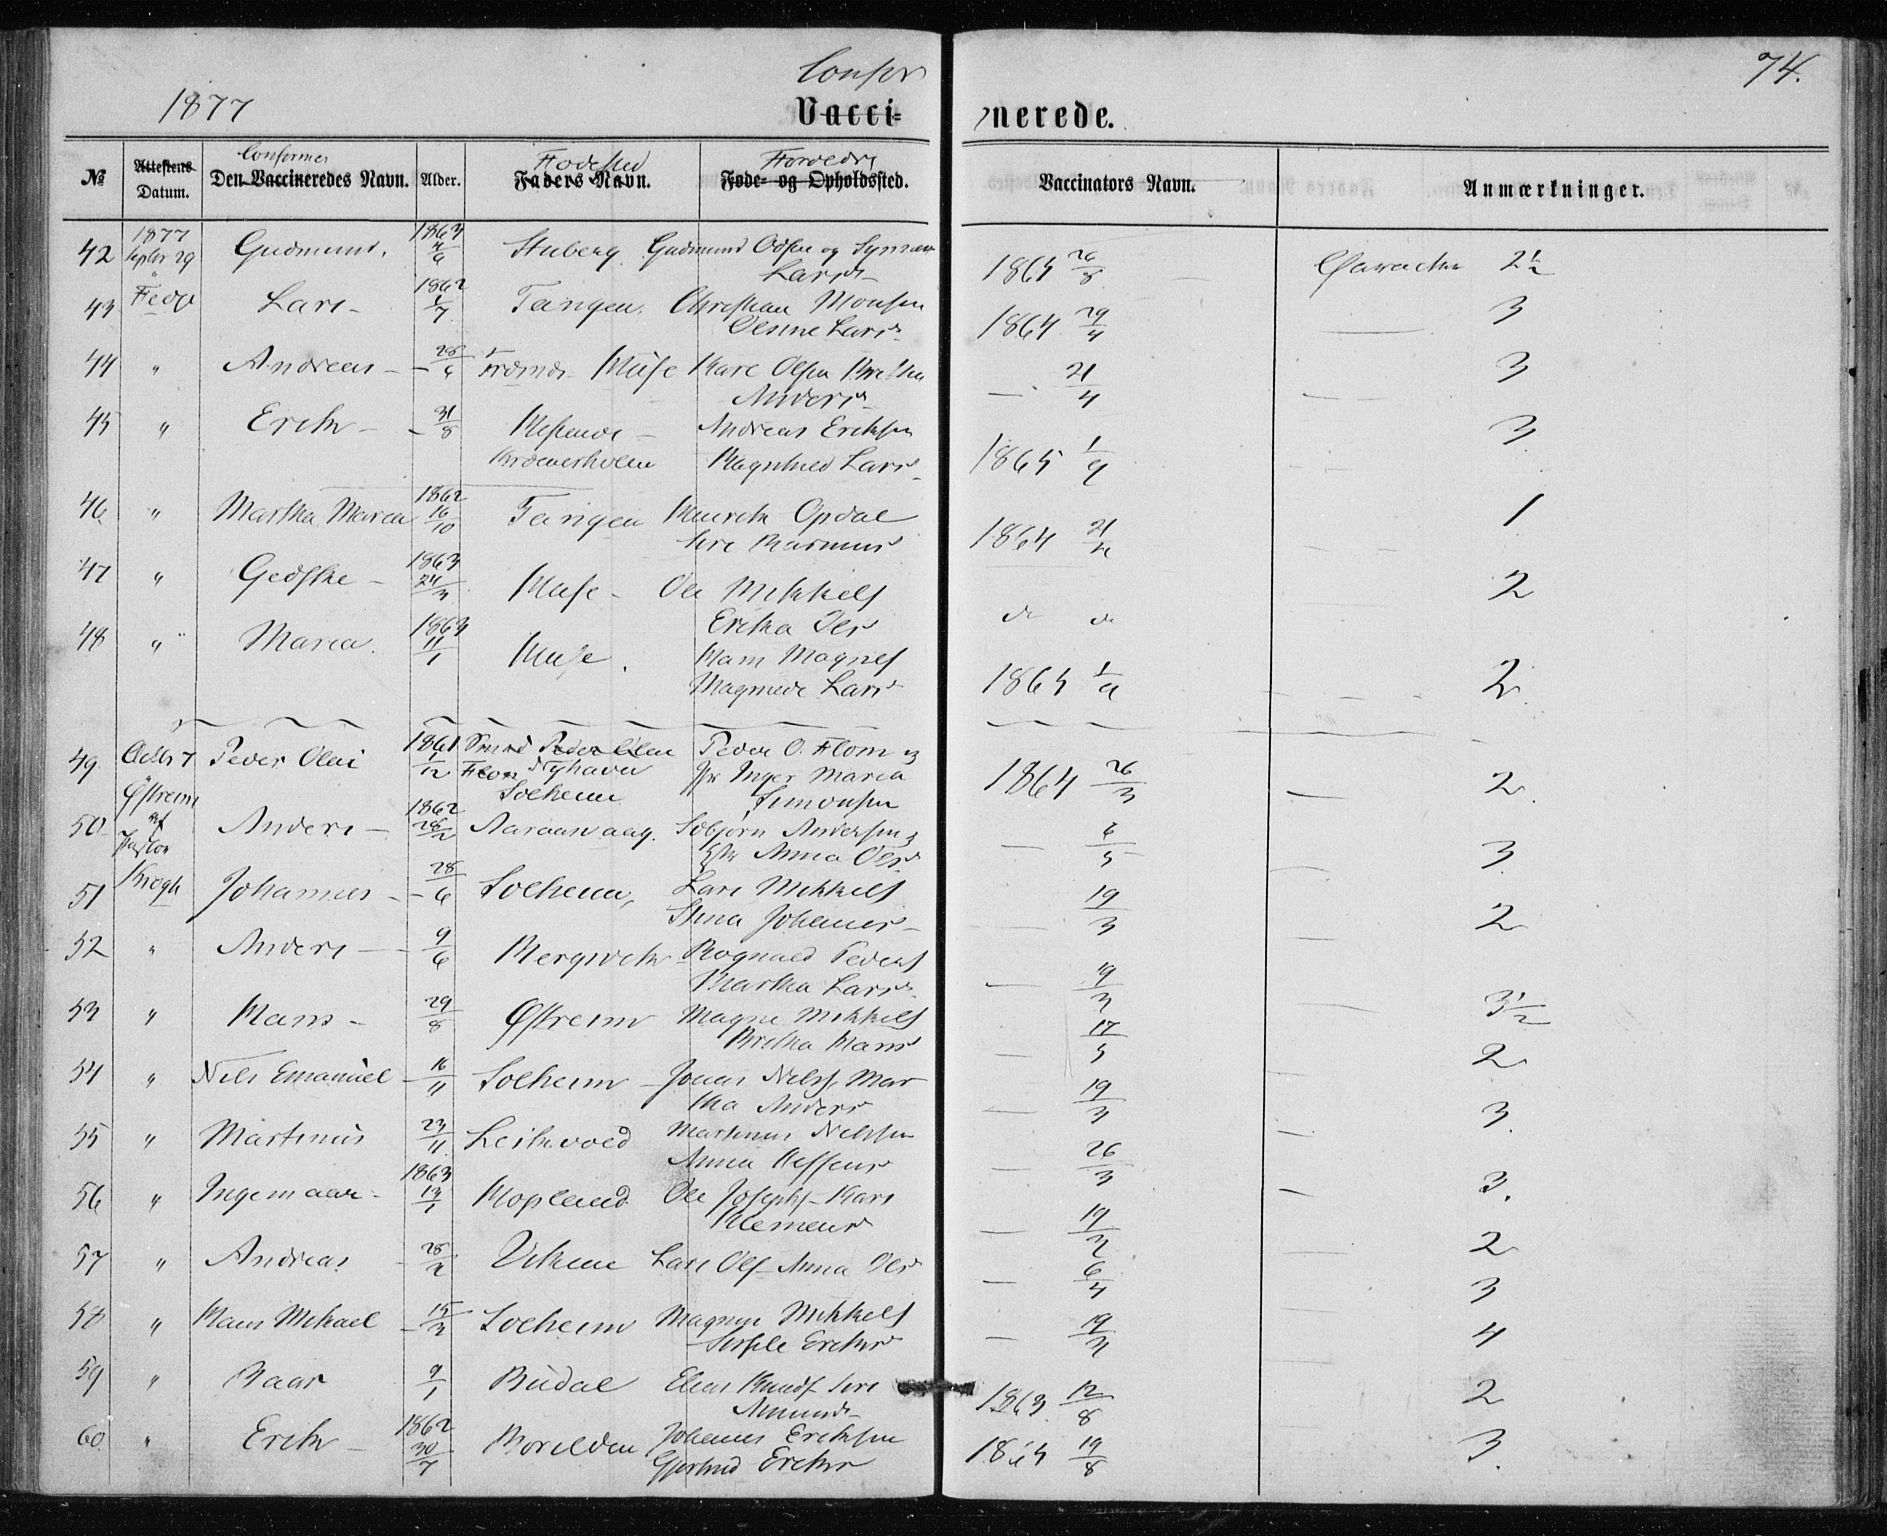 1877
Confir
74.
Vacci-
nerede.
№
Attestens Datum.
Confirmer
Den Vaccineredes Navn.
Alder.
Fødested
Faders Navn.
Forældre
Føde- og Opholdssted.
Vaccinators Navn.
Anmærkninger.
42 1877 Septbr 29 Gudmund. 1863 Stuberg. Gudmund Odsen og Synneve 1865 26/8 Caracter 2½
Lars
43 Fedje Lars 1862 1/7 Tangen. Christian Monsen 1864 29/4 3
Oline Lars
44 " Andreas - 28/6 Huse Olsen Britha 21/4 3
Anders
45 " Erik - 31/8 Andreas Eriksen 1865 1/9 3
Kræmmerholm Ragnhild Lars
46 " Martha Maria 1862 16/10 Tangen Henrik Opdal 1864 21/4 1
Siri Rasmus
47 " Gedske 1863 24/3 Huse Ole Mikkels do do 2
Eritha Ols
48 " Maria. 1863 11/1 Huse. Hans Magnes 1865 1/9 2
Magnede Lars
49 Octbr 7 Peder Olai 1861 1/12 Peder O. Flom og 1864 26/3 2.
Flom Nyhavn Inger Maria
Solheim Simonsen
Østreim
50 af Pastor Anders 1862 28/2 Aaraasvaag. Sebjørn Andersen 6/5 3
Anna Ols
51 Krogh Johannes 28/6 Solheim, Lars Mikkels 19/3 2
Stina Johannes
52 " Anders 9/6 Bergsvik Rognald Peders 19/3 3½
Martha Lars
53 " Hans 29/8 Østreim Magne Mikkels 17/5 2
Britha Hans
54 " Nils Emanuel 16/11 Solheim Jonas Nels. Mar- 19/3 3.
tha Anders
55 " Martinus 23/11 Leikvold Martinus Nelssen 26/3 3.
Anna Steffens
56 " Ingemaar 1863 13/1 Hopland Ole Josephs Kari 19/3 2
Klemens
57 " Andreas 28/2 Vikene Lars Ols Anna Ols 6/4 3
58 " Hans Mikael 15/3 Solheim Magne Mikkels 19/3 4
Sissele Eriks
59 " Baar 9/1 Budal Elias Knuds Siri 1863 12/8 2
Amunds
60 " Erik 1862 30/7 Borilden Johannes Eriksen 1864 19/8 3.
Gjertrud Eriks